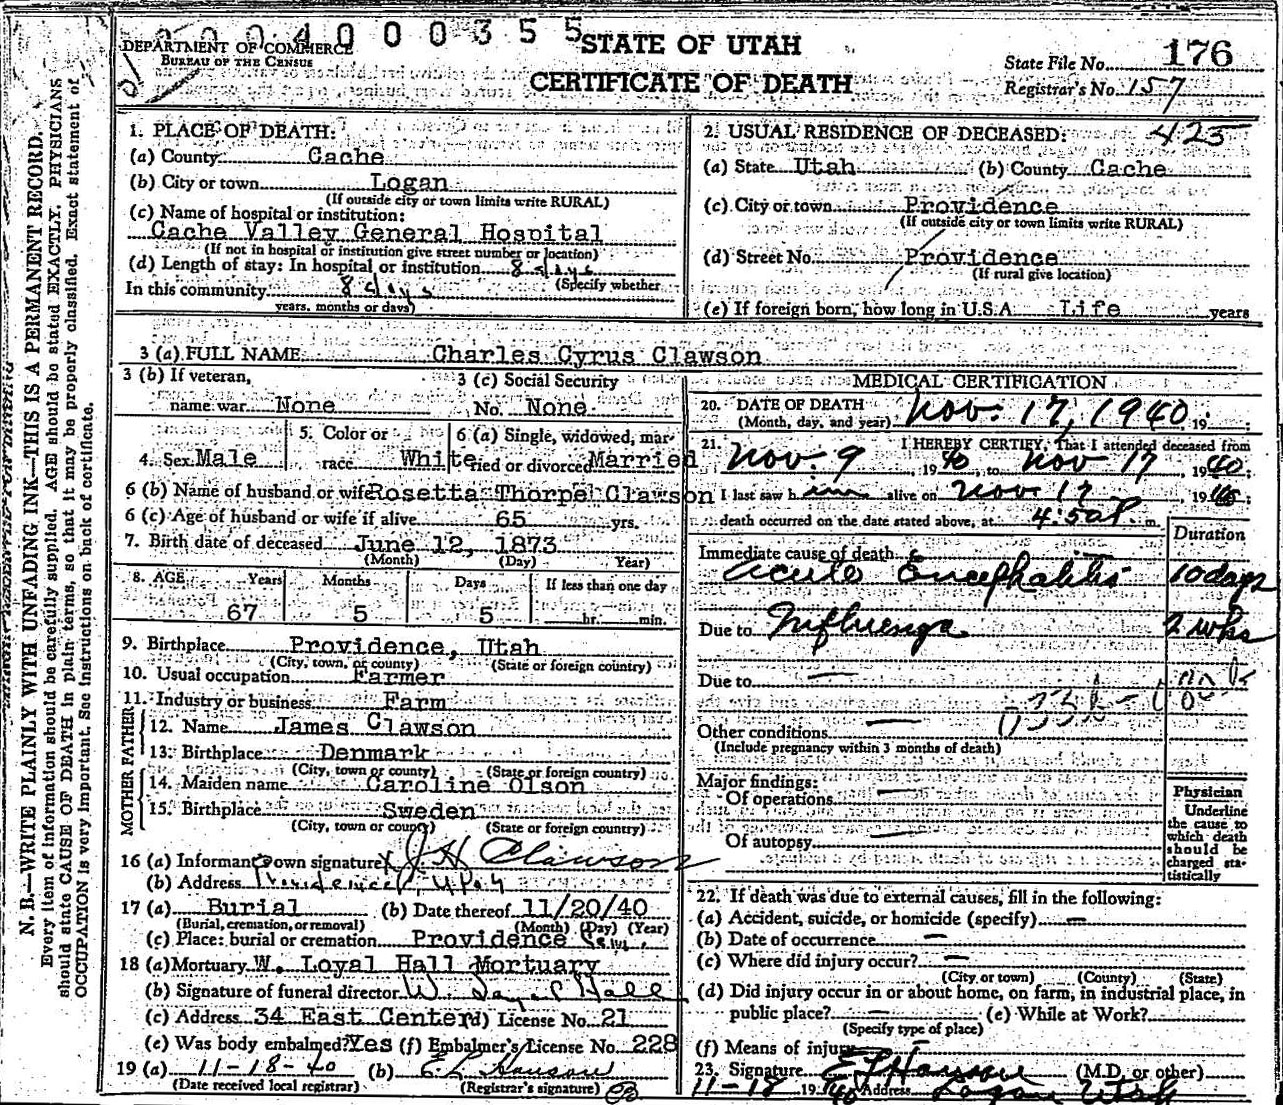 0004000355
DEPARTMENT OF COMMERCE
BUREAU OF THE CENSUS
STATE OF UTAH
CERTIFICATE OF DEATH
State File No. 176
Registrar's No. 157
N. B.—WRITE PLAINLY WITH UNFADING INK—THIS IS A PERMANENT RECORD.
Every item of information should be carefully supplied. AGE should be stated EXACTLY. PHYSICIANS
should state CAUSE OF DEATH in plain terms, so that it may be properly classified. Exact statement of
OCCUPATION is very important. See instructions on back of certificate.
1. PLACE OF DEATH:
(a) County Cache
(b) City or town Logan
(If outside city or town limits write RURAL)
(c) Name of hospital or institution:
Cache Valley General Hospital
(If not in hospital or institution give street number or location)
(d) Length of stay: In hospital or institution 8 days
(Specify whether
In this community 8 days
years, months or days)
2. USUAL RESIDENCE OF DECEASED: 425
(a) State Utah (b) County Cache
(c) City or town Providence
(If outside city or town limits write RURAL)
(d) Street No. Providence
(If rural give location)
(e) If foreign born, how long in U.S.A. Life years
3 (a) FULL NAME Charles Cyrus Clawson
3 (b) If veteran, 3 (c) Social Security
name war None No. None
4. Sex Male 5. Color or race White 6 (a) Single, widowed, married or divorced Married
6 (b) Name of husband or wife Rosetta Thorpe Clawson
6 (c) Age of husband or wife if alive 65 yrs.
7. Birth date of deceased June 12, 1873
(Month) (Day) Year)
8. AGE Years Months Days If less than one day
67 5 5 hr. min.
9. Birthplace Providence, Utah
(City, town, or county) (State or foreign country)
10. Usual occupation Farmer
11. Industry or business Farm
FATHER
12. Name James Clawson
13. Birthplace Denmark
(City, town or county) (State or foreign country)
MOTHER
14. Maiden name Caroline Olson
15. Birthplace Sweden
(City, town or county) (State or foreign country)
16 (a) Informant's own signature X J. H Clawson
(b) Address Providence, Utah
17 (a) Burial (b) Date thereof 11/20/40
(Burial, cremation, or removal) (Month) (Day) (Year)
(c) Place: burial or cremation Providence Cem.
18 (a) Mortuary W. Loyal Hall Mortuary
(b) Signature of funeral director W Loyal Hall
(c) Address 34 East Center (d) License No. 21
(e) Was body embalmed? Yes (f) Embalmer's License No. 228
19 (a) 11-18-40 (b) E L Hanson
(Date received local registrar) (Registrar's signature)
MEDICAL CERTIFICATION
20. DATE OF DEATH Nov. 17, 1940 19 :
(Month, day, and year)
21. I HEREBY CERTIFY, That I attended deceased from
Nov. 9, 1940, to Nov 17 1940;
I last saw him alive on Nov 17, 1940;
death occurred on the date stated above, at 4:50 P. m.
Duration
Immediate cause of death
Acute Encephalitis 10 days
Due to Influenza 2 wks
Due to —
Other conditions —
(Include pregnancy within 3 months of death)
Major findings:
Of operations —
Of autopsy —
Physician
Underline
the cause to
which death
should be
charged sta-
tistically
22. If death was due to external causes, fill in the following:
(a) Accident, suicide, or homicide (specify) —
(b) Date of occurrence —
(c) Where did injury occur? —
(City or town) (County) (State)
(d) Did injury occur in or about home, on farm, in industrial place, in
public place? — (e) While at Work?
(Specify type of place)
(f) Means of injury —
23. Signature E L Hanson (M.D. or other)
11-18 1940 Address Logan Utah